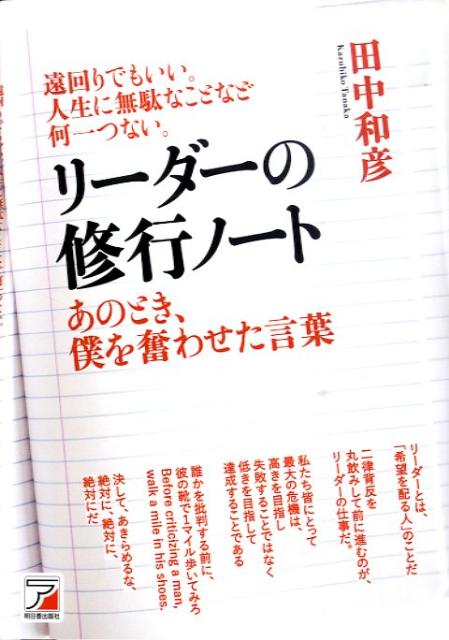 遠回りでもいい。
人生に無駄なことなど
何一つない。
田中和彦
Kazuhiko Tanaka
リーダーの
修行ノート
あのとき、
僕を奮わせた言葉
リーダーとは、
「希望を配る人」のことだ
二律背反を
丸飲みして前に進むのが、
リーダーの仕事だ。
私たち皆にとって
最大の危機は、
高きを目指し
失敗することではなく
低きを目指して
達成することである
誰かを批判する前に、
彼の靴で1マイル歩いてみろ
Before criticizing a man,
walk a mile in his shoes.
決して、あきらめるな、
絶対に、絶対に、
絶対にだ
ア
明日香出版社